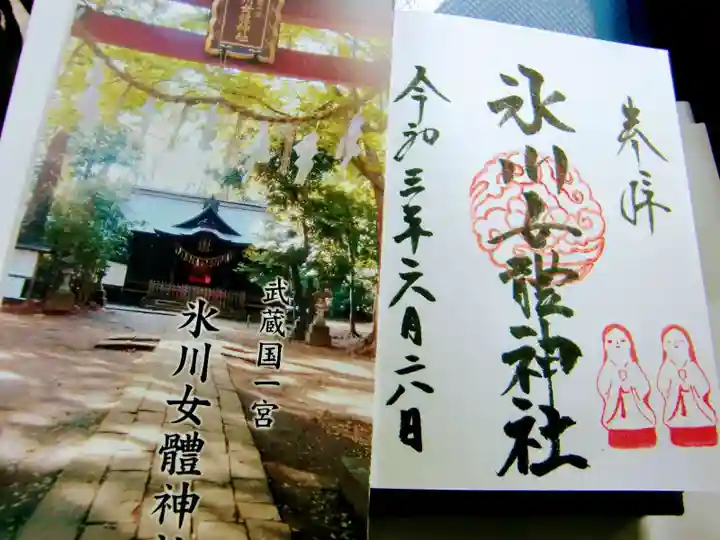 奉拝
氷川女體神社
令和三年六月六日
武蔵国一宮
氷川女體神